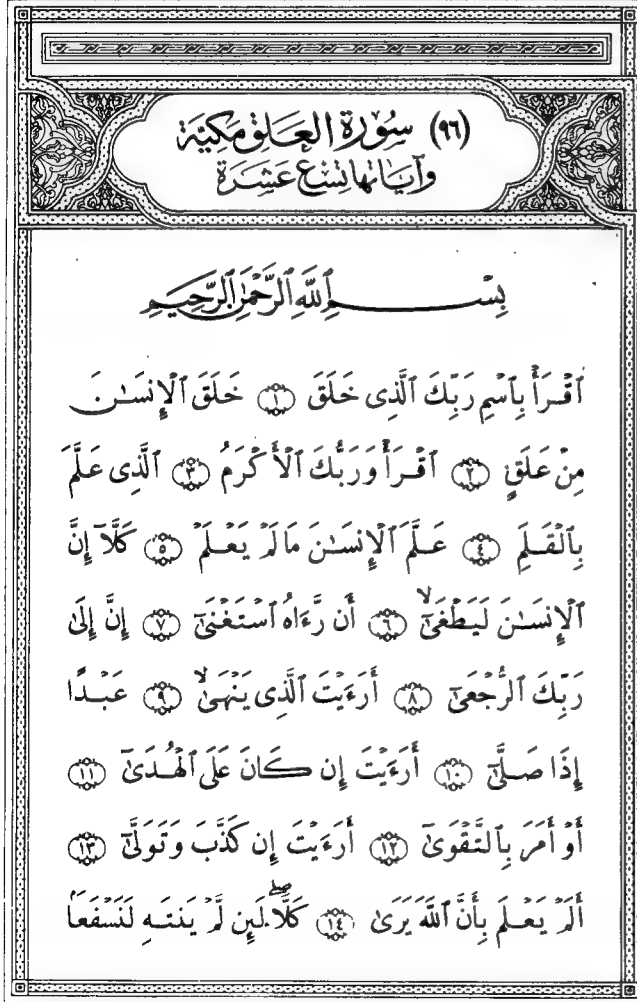 (٩٦) سُورَة العَلَق مَكيّة
وَآيَاتها تِسْع عَشرَة
بِسْمِ ٱللَّهِ ٱلرَّحْمَٰنِ ٱلرَّحِيمِ
ٱقْرَأْ بِٱسْمِ رَبِّكَ ٱلَّذِى خَلَقَ ١ خَلَقَ ٱلْإِنسَٰنَ
مِنْ عَلَقٍ ٢ ٱقْرَأْ وَرَبُّكَ ٱلْأَكْرَمُ ٣ ٱلَّذِى عَلَّمَ
بِٱلْقَلَمِ ٤ عَلَّمَ ٱلْإِنسَٰنَ مَا لَمْ يَعْلَمْ ٥ كَلَّآ إِنَّ
ٱلْإِنسَٰنَ لَيَطْغَىٰٓ ۙ ٦ أَن رَّءَاهُ ٱسْتَغْنَىٰٓ ٧ إِنَّ إِلَىٰ
رَبِّكَ ٱلرُّجْعَىٰٓ ٨ أَرَءَيْتَ ٱلَّذِى يَنْهَىٰ ۙ ٩ عَبْدًا
إِذَا صَلَّىٰٓ ١٠ أَرَءَيْتَ إِن كَانَ عَلَى ٱلْهُدَىٰٓ ١١
أَوْ أَمَرَ بِٱلتَّقْوَىٰٓ ١٢ أَرَءَيْتَ إِن كَذَّبَ وَتَوَلَّىٰٓ ١٣
أَلَمْ يَعْلَم بِأَنَّ ٱللَّهَ يَرَىٰ ١٤ كَلَّا ۖ لَئِن لَّمْ يَنتَهِ لَنَسْفَعَۢا